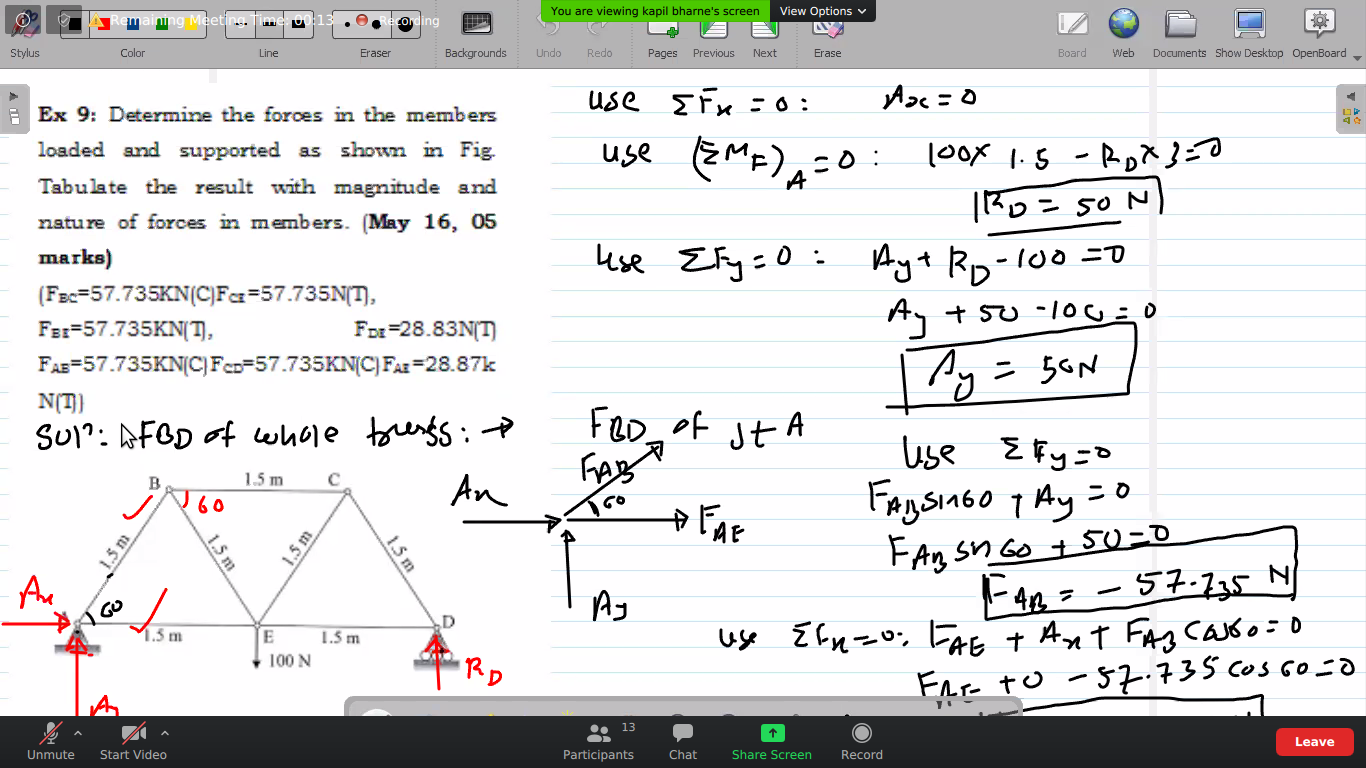 Remaining Meeting Time: 00:13
Recording
You are viewing kapil bharne's screen
View Options
Stylus
Color
Line
Eraser
Backgrounds
Undo
Redo
Pages
Previous
Next
Erase
Board
Web
Documents
Show Desktop
OpenBoard
Ex 9: Determine the forces in the members
loaded and supported as shown in Fig.
Tabulate the result with magnitude and
nature of forces in members. (May 16, 05
marks)
(FBC=57.735KN(C)FCE=57.735N(T),
FBE=57.735KN(T), FDE=28.83N(T)
FAB=57.735KN(C)FCD=57.735KN(C)FAE=28.87k
N(T))
Soln: FBD of whole truss: →
B
1.5 m
C
60
1.5 m
1.5 m
1.5 m
1.5 m
Ax
A
60
1.5 m
E
1.5 m
D
100 N
RD
use ΣFx = 0: Ax = 0
use (ΣMF)A = 0: 100 × 1.5 - RD × 3 = 0
RD = 50 N
Use ΣFy = 0: Ay + RD - 100 = 0
Ay + 50 - 100 = 0
Ay = 50N
FBD of jt A
FAB
Ax
60
FAE
Ay
Use ΣFy = 0
FAB sin60 + Ay = 0
FAB sin 60 + 50 = 0
FAB = - 57.735 N
use ΣFx = 0: FAE + Ax + FAB cos60 = 0
FAE + 0 - 57.735 cos 60 = 0
Unmute
Start Video
Participants
13
Chat
Share Screen
Record
Leave